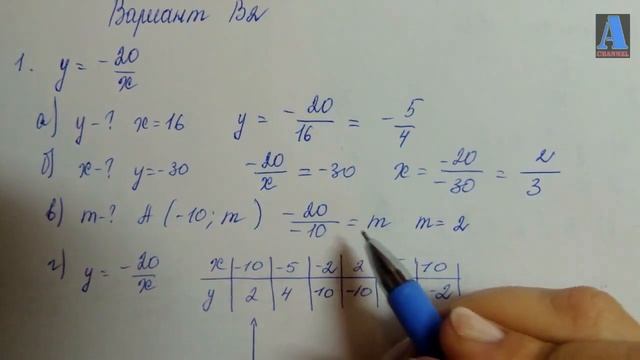 A
CHANNEL
Вариант В2
1. y = -20/x
а) y-? x=16 y = -20/16 = -5/4
б) x-? y=-30 -20/x = -30 x = -20/-30 = 2/3
в) m-? A (-10; m) -20/-10 = m m = 2
г) y = -20/x x | -10 | -5 | -2 | 2 | | 10 |
y | 2 | 4 | 10 | -10 | | -2 |